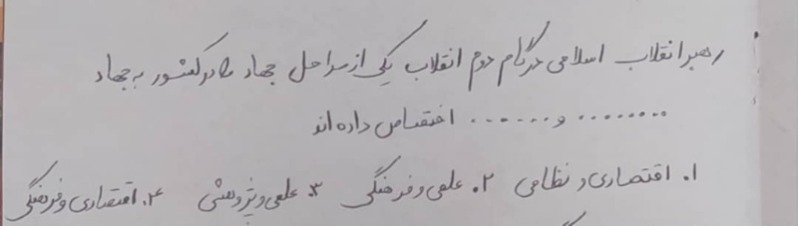 رهبر انقلاب اسلامی در گام دوم انقلاب یکی از مراحل جهاد در کشور به جهاد
........ و ....... اختصاص داده اند
۱. اقتصادی و نظامی ۲. علمی و فرهنگی ۳. علمی و پژوهشی ۴. اقتصادی و فرهنگی